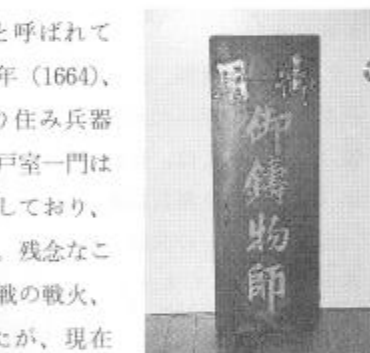 と呼ばれて
年（1664）、
り住み兵器
戸室一門は
しており、
、残念なこ
戦の戦火、
たが、現在
御用
御鋳物師